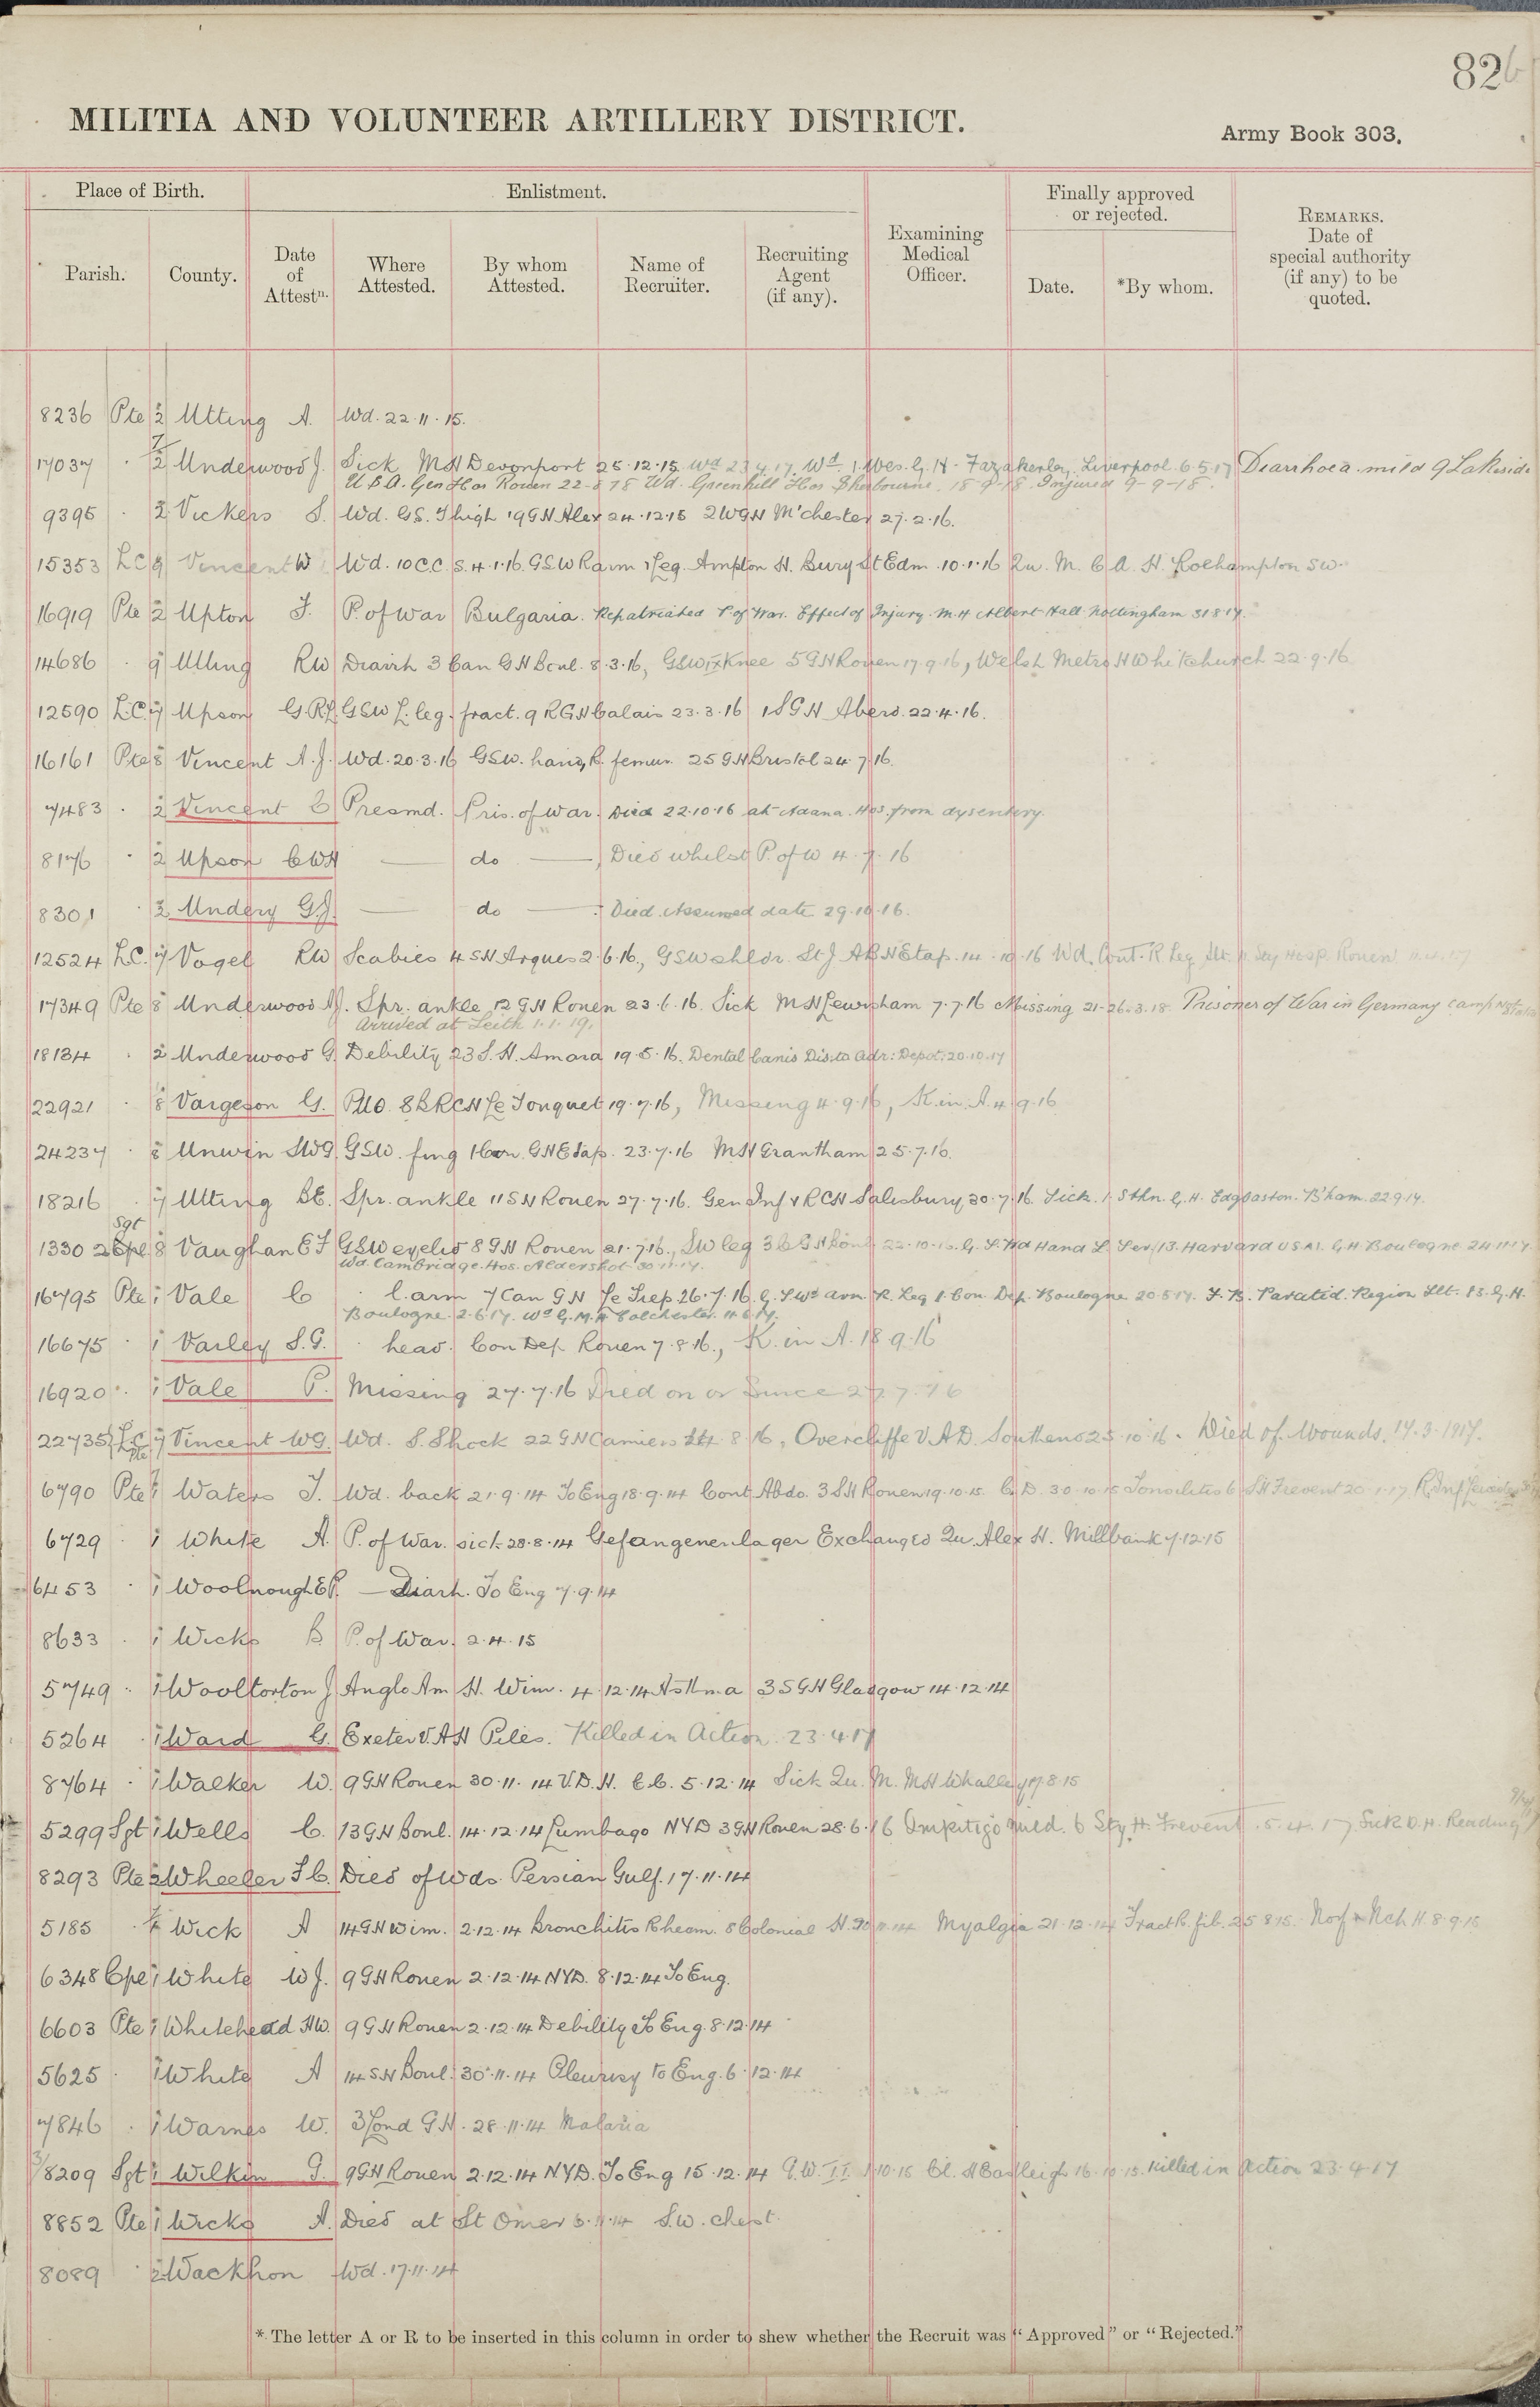 82
MILITIA AND VOLUNTEER ARTILLERY DISTRICT.
Army Book 303.
Place of Birth. Enlistment. Examining Medical Officer. Finally approved or rejected. REMARKS. Date of special authority (if any) to be quoted.
Parish. County. Date of Attestn. Where Attested. By whom Attested. Name of Recruiter. Recruiting Agent (if any). Date. *By whom.
8236 Pte 2 Utting A. Wd. 22.11.15.
17037 . 2 Underwood J. Sick MH Devonport 25.12.15 Wd 23.4.17. Wd. 1. Wes. G. H. Fazakerley Liverpool 6.5.17 Diarrhoea mild 9 Lakeside
U S A. Gen Hos Rouen 22-8-18 Wd. Greenhill Hos Sherbourne. 18-9-18. Injured 9-9-18.
9395 . 2 Vickers S. Wd. GS. Thigh 19GH Alex 24.12.15 2WGH M'chester 27.2.16.
15353 LC 9 Vincent W Wd. 10 C.C.S. 4.1.16 GSW R arm & leg. Ampton H. Bury St Edm. 10.1.16 Qu. M. C A. H. Roehampton SW.
16919 Pte 2 Upton F. P. of War Bulgaria. Repatriated P. of War. Effect of Injury. M.H Albert Hall Nottingham 31.8.17.
14686 . 9 Utting RW Diarrh 3 Can GH Boul. 8.3.16, GSW Knee 5GH Rouen 17.9.16, Welsh Metro H Whitchurch 22.9.16
12590 L.C. 7 Upson G.R.L GSW L. leg. fract. 9 RGH Calais 23.3.16 1SGH Aberd. 22.4.16.
16161 Pte 8 Vincent A.J. Wd. 20.3.16 GSW. hand, R. femur 2SGH Bristol 24.7.16.
7483 . 2 Vincent C Presmd. Pris. of War. Died 22.10.16 at Adana Hos. from dysentery.
8176 . 2 Upson CWH do , Died whilst P. of W 4.7.16
8301 . 2 Undery G.J. do : Died Assumed date 29.10.16.
12524 L.C. 7 Vogel RW Scabies 4SH Arques 2.6.16, GSW shldr. St J ABH Etap. 14.10.16 Wd. Cont. R Leg Hosp. Rouen
17349 Pte 8 Underwood AJ. Spr. ankle 12 GH Rouen 23.6.16. Sick MH Lewisham 7.7.16 Missing 21-26.3.18 Prisoner of War in Germany Camp Not Stated
Arrived at Leith 1.1.19.
18134 . 2 Underwood G. Debility 23 S. H. Amara 19.5.16. Dental Caries Dis. to Adv: Depot: 20.10.17
22921 . 8 Vargeson G. PUO 8 BRCH Le Touquet 19.7.16, Missing 4.9.16, K. in. A. 4.9.16
24237 . 8 Unwin SWG GSW. fing 1 Can. GH Etap. 23.7.16 MH Grantham 25.7.16.
18216 . 7 Utting BE. Spr. ankle 11SH Rouen 27.7.16. Gen Inf & RCH Salisbury 30.7.16 Sick. 1. Sthn. G. H. Edgbaston. B'ham. 22.9.17.
Sgt
13302 Cpl 8 Vaughan EF GSW eyelid 8 GH Rouen 21.7.16, SW leg 3 22.10.16. G. S. Wd Hand L Sev/13. Harvard U.S.A. G.H. Boulogne 24.11.17
Wd. Cambridge. Hos. Aldershot 30.11.17.
16795 Pte 1 Vale C . l. arm 7 Can GH Le Trep. 26.7.16. G. S Wd arm. R. Leg 1. Con. Dep. Boulogne 20.5.17. F. B. Parotid Region Slt. 13. G. H.
Boulogne. 2.6.17. Wd G. M. H Colchester. 11.6.17.
16675 . 1 Varley S.G. . head. Con Dep Rouen 7.8.16., K. in A. 18.9.16
16920 . 1 Vale P. Missing 27.7.16 Died on or Since 27.7.16
22735 L.C. Pte 7 Vincent WG Wd. S. Shock 22 GH Camiers 8.16, Overcliffe V.A.D. Southend 25.10.16. Died of Wounds. 17.3.1917.
6790 Pte 1 Waters T. Wd. back 21.9.14 To Eng 18.9.14 Cont Abdo. 3 SH Rouen 19.10.15. C. D. 30.10.15 Tonsilitis 6 SH Frevent 20.1.17
6729 . 1 White A. P. of War. sick 28.8.14 Gefangenenlager Exchanged Qu. Alex H. Millbank 7.12.15
6453 . 1 Woolnough EP. — Diarh. To Eng 7.9.14
8633 . 1 Wicks B P. of War. 2.4.15
5749 . 1 Wooltorton J Anglo Am H. Wim. 4.12.14 Asthma 3SGH Glasgow 14.12.14
5264 . 1 Ward G. Exeter V.A H Piles. Killed in Action. 23.4.17
8764 . 1 Walker W. 9GH Rouen 30.11.14 V.D.H. C.C. 5.12.14 Sick Qu. M. MH Whalley 17.8.15
5299 Sgt 1 Wells C. 13GH Boul. 14.12.14 Lumbago NYD 3GH Rouen 28.6.16 Impetigo mild. 6 Sty. H. Frevent. 5.4.17 Sick D.H. Reading
8293 Pte 2 Wheeler FC. Died of Wds Persian Gulf. 17.11.14
5185 . Wick A 14GH Wim. 2.12.14 Bronchitis Rheum. 8 Colonial H. 11.14 Myalgia 21.12.14 Fract R. fib. 25.8.15. Norf & Nch H. 8.9.15
6348 Cpl 1 White W J. 9GH Rouen 2.12.14 NYD. 8.12.14 To Eng.
6603 Pte 1 Whitehead HW. 9GH Rouen 2.12.14 Debility To Eng. 8.12.14
5625 . 1 White A 14SH Boul. 30.11.14 Pleurisy to Eng. 6.12.14
7846 . 1 Warnes W. 3 Lond G.H. 28.11.14 Malaria
3/8209 Sgt 1 Wilkin G. 9GH Rouen 2.12.14 NYD. To Eng 15.12.14 10.15 Cl. H Eastleigh 16.10.15. Killed in Action 23.4.17
8852 Pte 1 Wicks A. Died at St Omer 11.14 S.W. chest
8089 . 2 Wackhon Wd. 17.11.14
* The letter A or R to be inserted in this column in order to shew whether the Recruit was "Approved" or "Rejected."